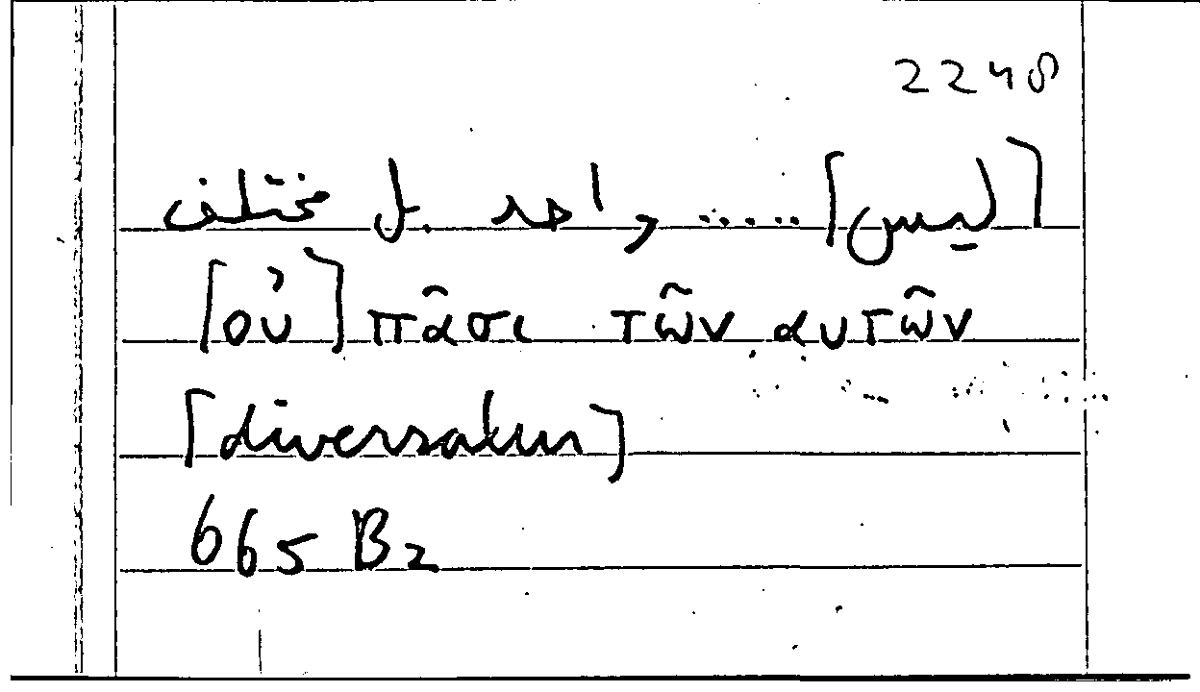 2248
[ليس] ..... واحد بل مختلف
[οὐ] πᾶσι τῶν αυτῶν
[diversatur]
665 B2